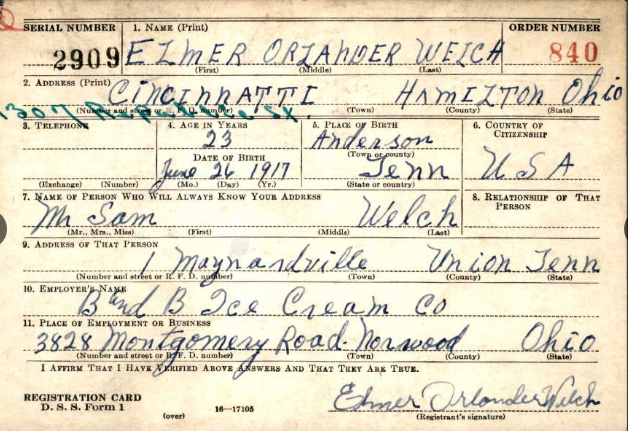 SERIAL NUMBER 1. NAME (Print) ORDER NUMBER
2909 ELMER ORLANDER WELCH 840
(First) (Middle) (Last)
2. ADDRESS (Print) CINCINNATTI HAMILTON Ohio
1307 Republic St.
(Number and street or R. F. D. number) (Town) (County) (State)
3. TELEPHONE 4. AGE IN YEARS 5. PLACE OF BIRTH 6. COUNTRY OF CITIZENSHIP
23 Anderson
DATE OF BIRTH (Town or county)
June 26 1917 Tenn U S A
(Exchange) (Number) (Mo.) (Day) (Yr.) (State or country)
7. NAME OF PERSON WHO WILL ALWAYS KNOW YOUR ADDRESS 8. RELATIONSHIP OF THAT PERSON
Mr Sam Welch
(Mr., Mrs., Miss) (First) (Middle) (Last)
9. ADDRESS OF THAT PERSON
1 Maynardville Union Tenn
(Number and street or R. F. D. number) (Town) (County) (State)
10. EMPLOYER'S NAME
B and B Ice Cream Co
11. PLACE OF EMPLOYMENT OR BUSINESS
3828 Montgomery Road. Norwood Ohio
(Number and street or R. F. D. number) (Town) (County) (State)
I AFFIRM THAT I HAVE VERIFIED ABOVE ANSWERS AND THAT THEY ARE TRUE.
REGISTRATION CARD
D. S. S. Form 1 16—17105 Elmer Orlander Welch
(over) (Registrant's signature)